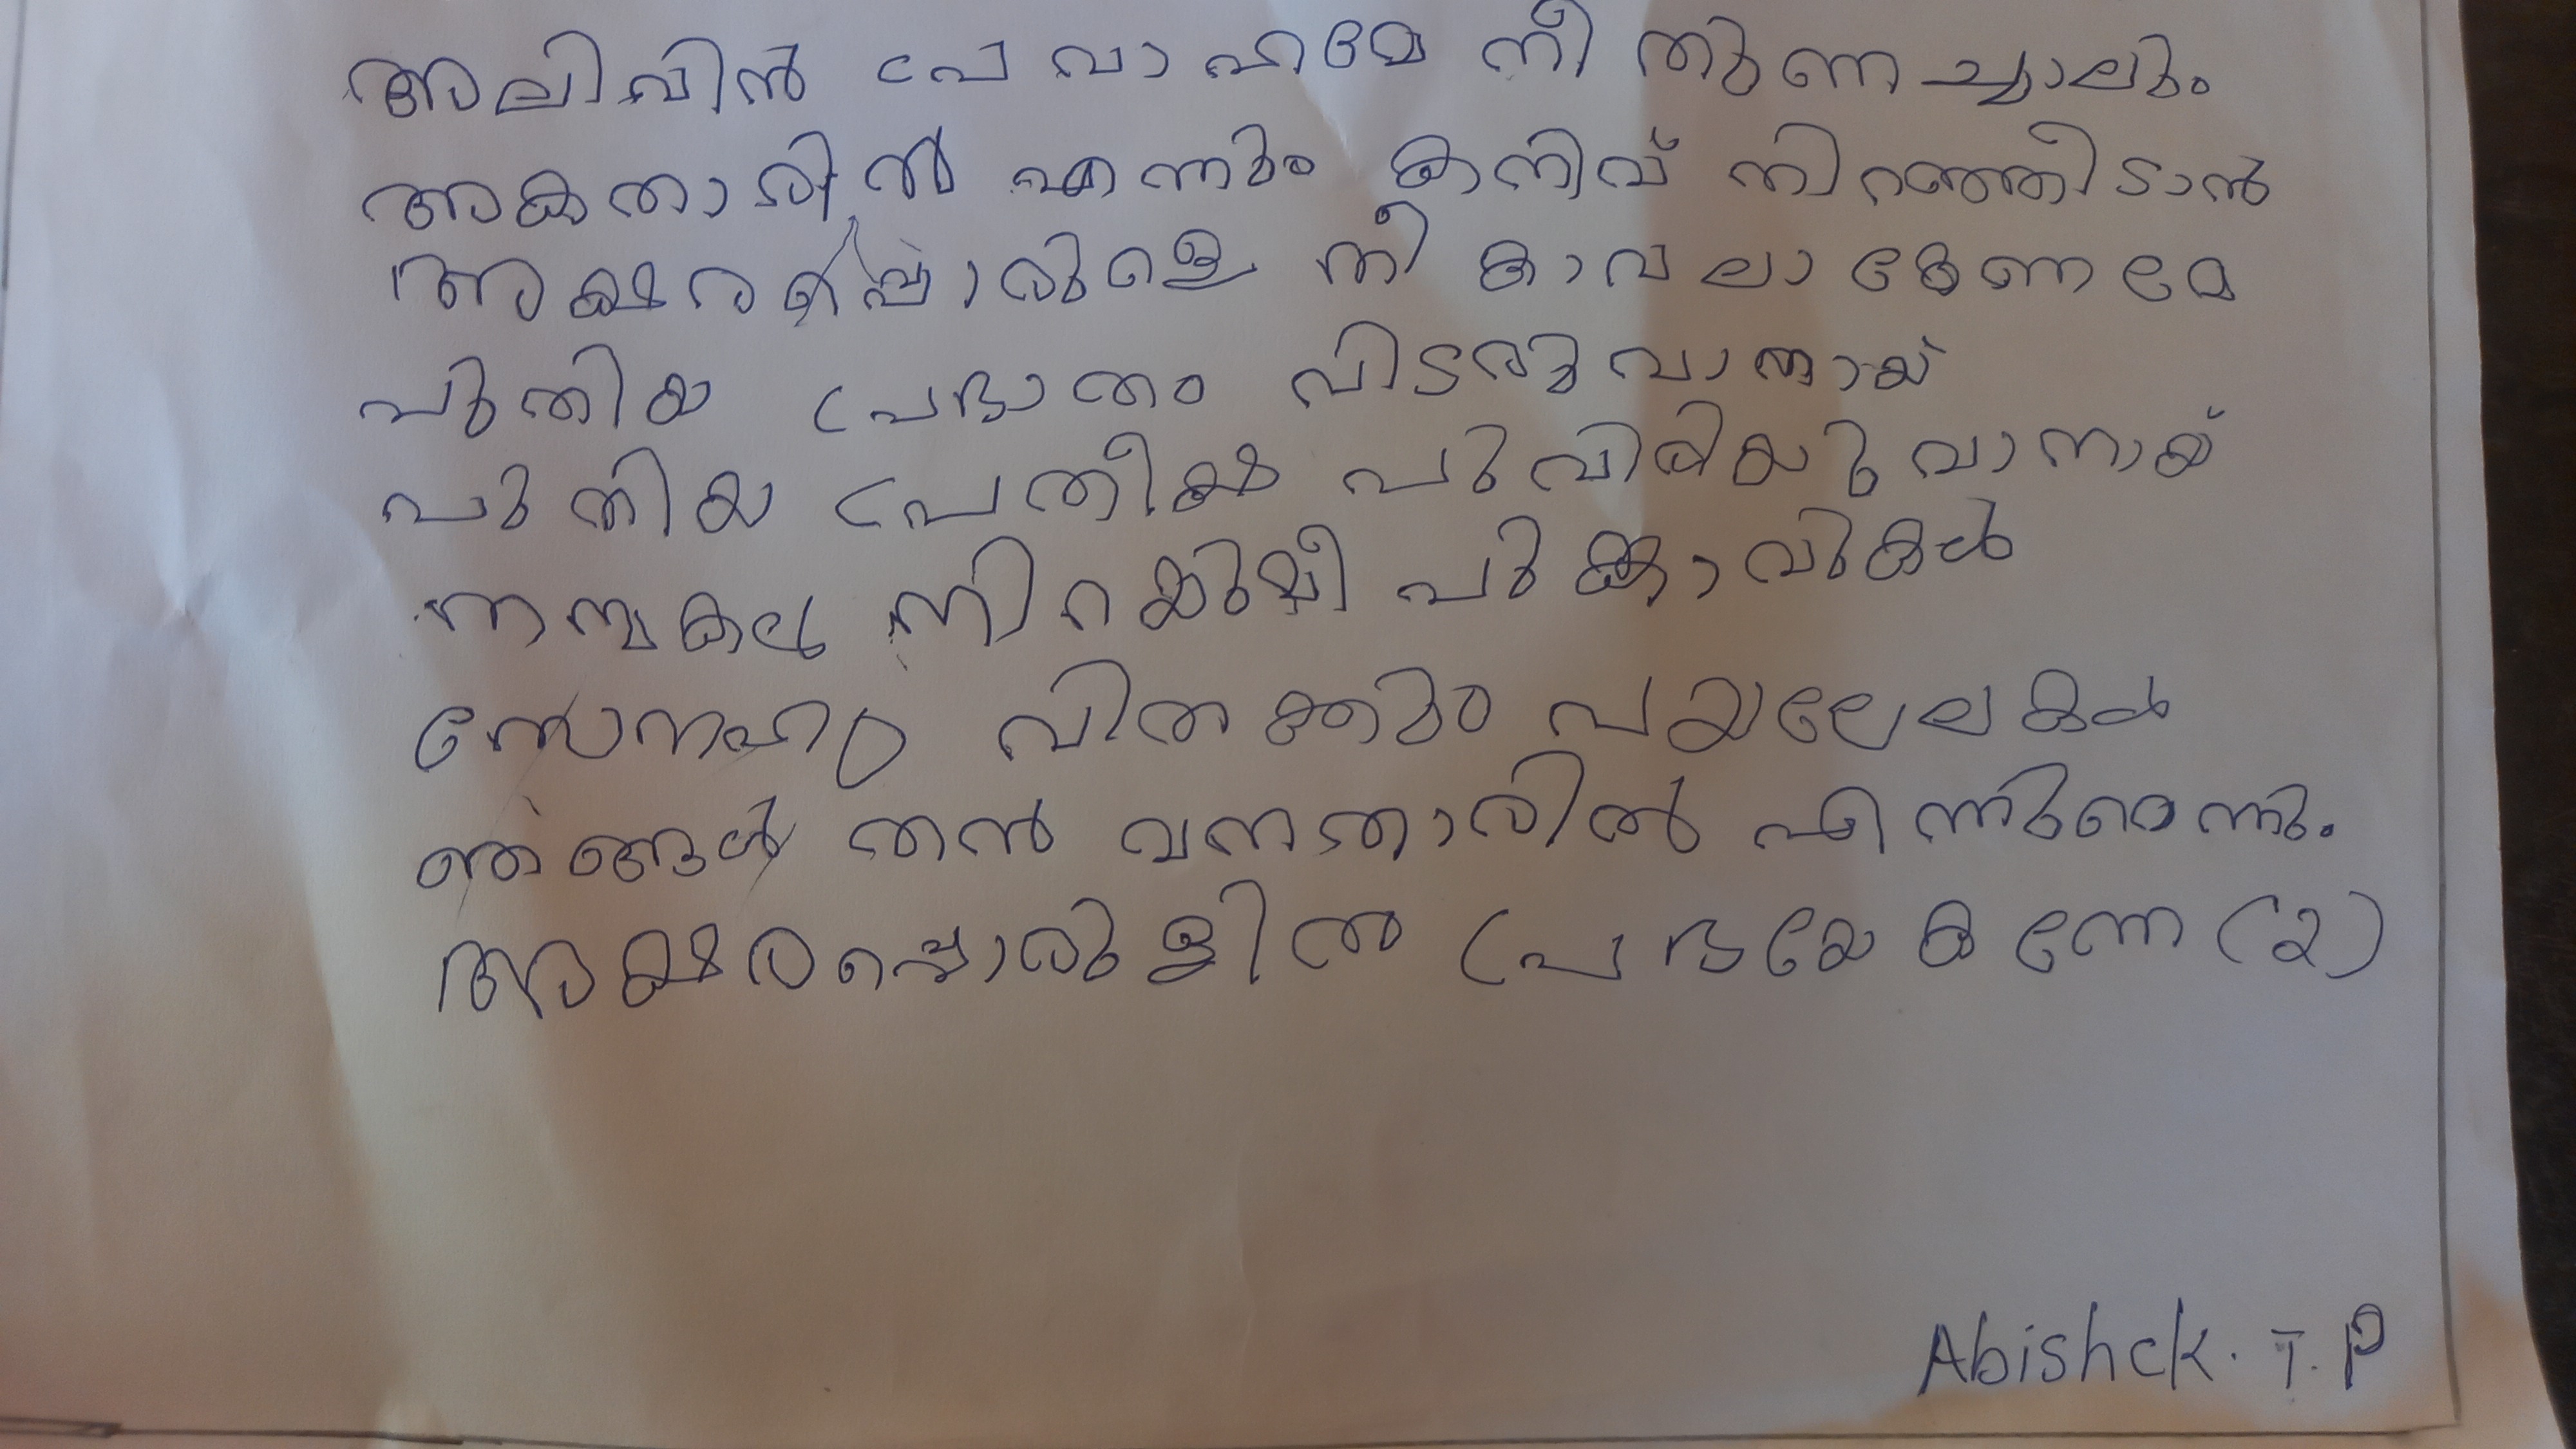 അലിവിൻ പ്രവാഹമേ നീ തുണച്ചാലും
അകതാരിൽ എന്നും കനിവ് നിറഞ്ഞീടാൻ
അക്ഷരപ്പൊരുളെ നീ കാവലാകേണമേ
പുതിയ പ്രഭാതം വിടരുവാനായ്
പുതിയ പ്രതീക്ഷ പൂവിരിയുവാനായ്
നന്മകൾ നിറയുമീ പൂങ്കാവുകൾ
സ്നേഹം വിതക്കും പയലേലകൾ
ഞങ്ങൾ തൻ വനതാരിൽ എന്നുമെന്നും
അക്ഷരപ്പൊരുളിൻ പ്രഭയേകണേ (2)
Abishek. T. P